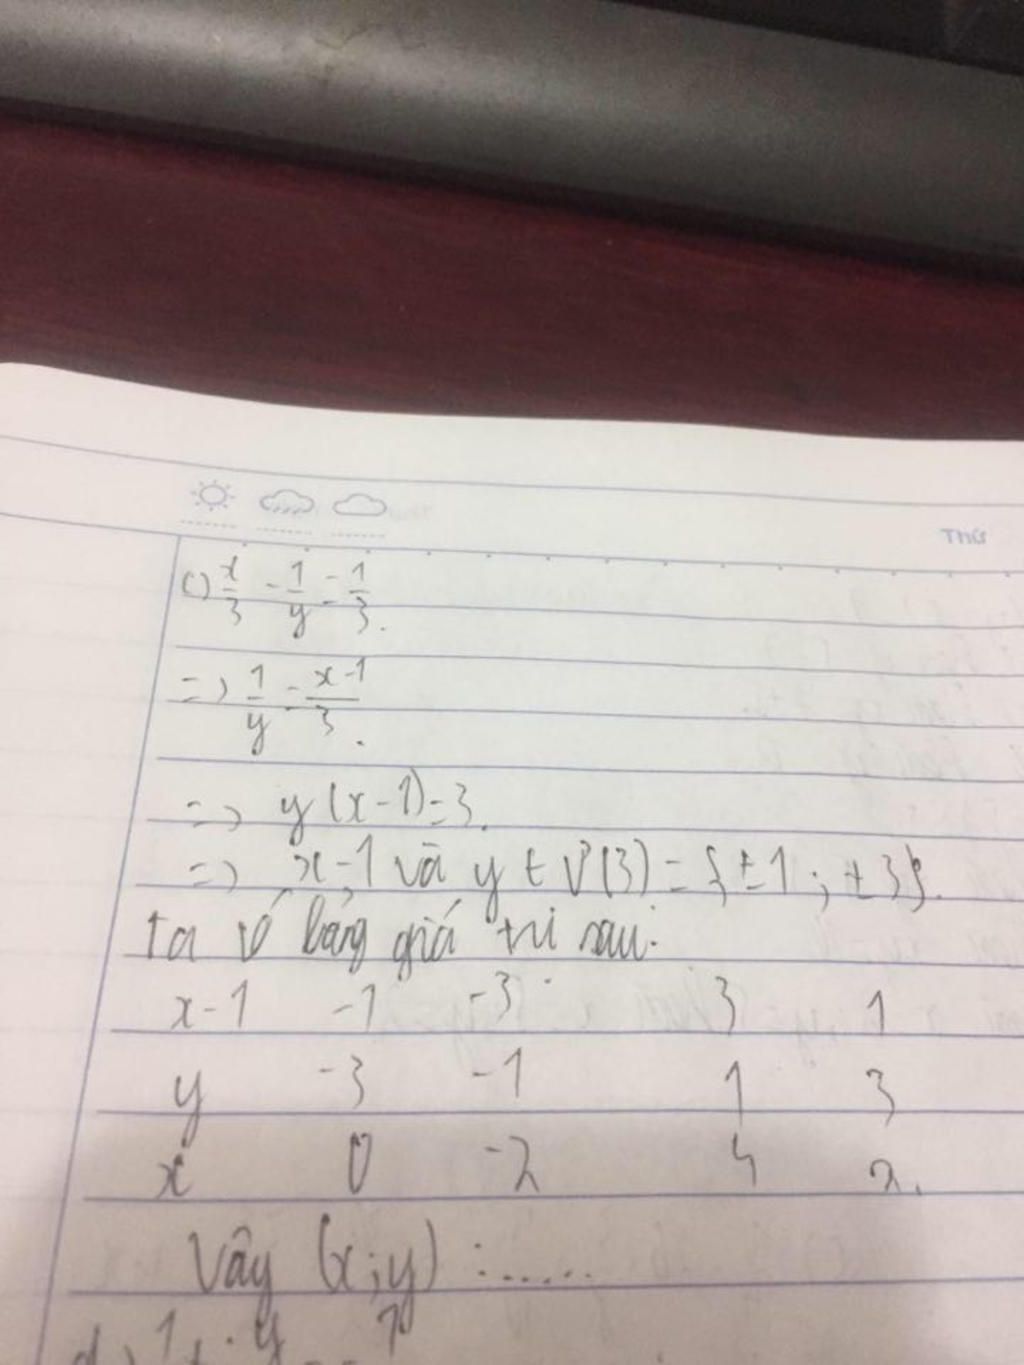 Thứ
c) x/3 - 1/y = 1/3.
=> 1/y = x-1/3.
=> y(x-1)=3.
=> x-1 và y ∈ Ư(3) = {±1; ±3}.
Ta có bảng giá trị sau:
x-1 -1 -3 3 1
y -3 -1 1 3
x 0 -2 4 2.
Vậy (x;y) : ......